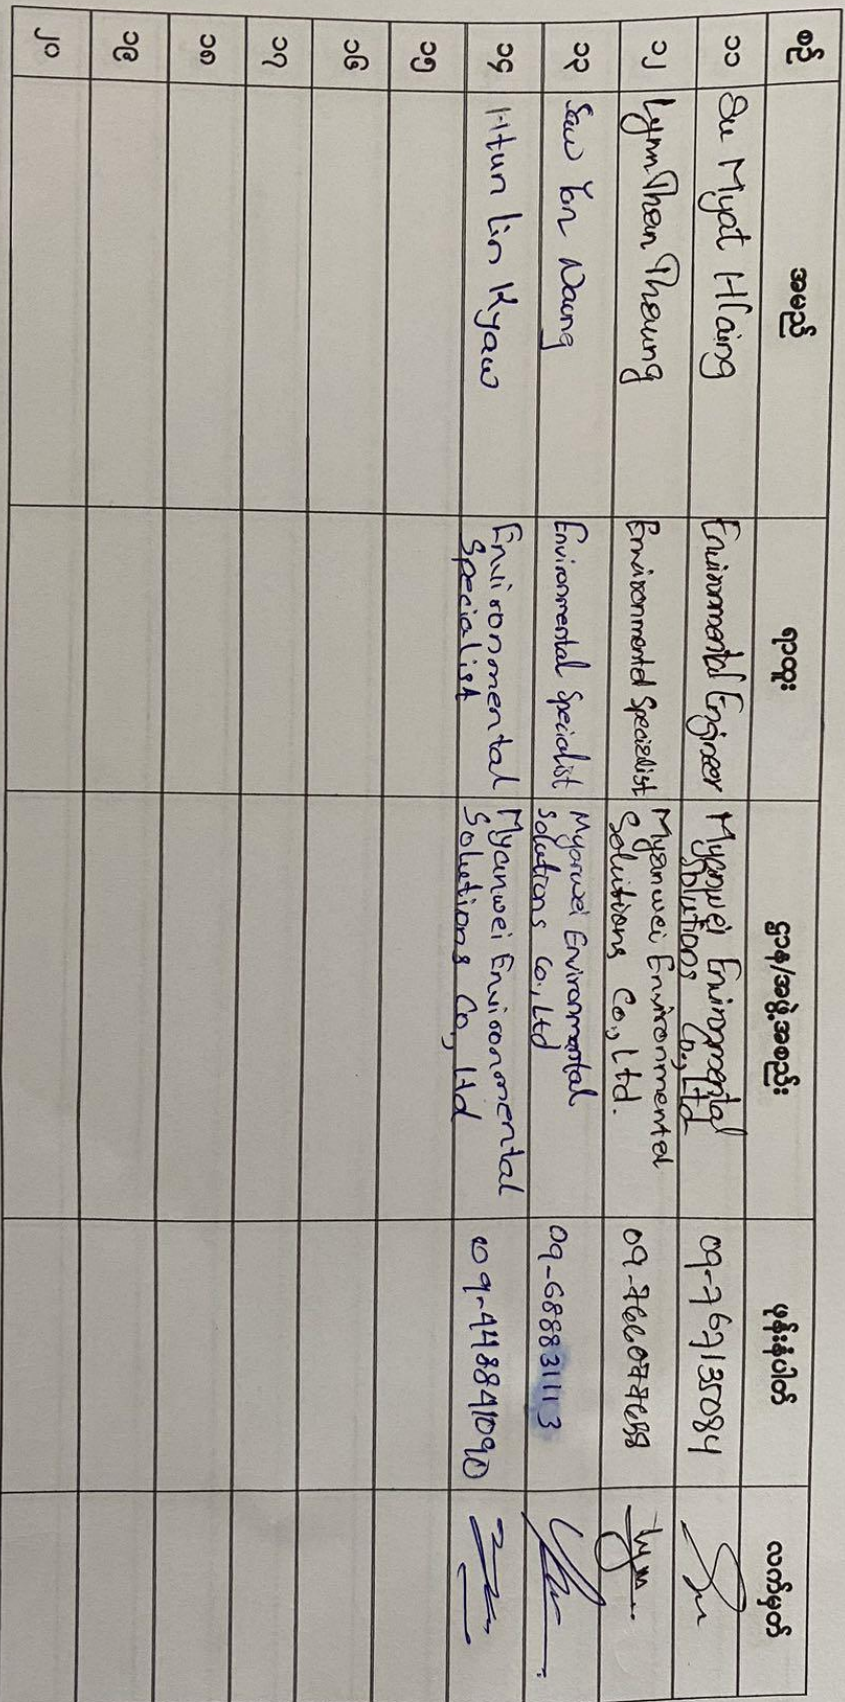 စဉ် အမည် ရာထူး ဌာန/အဖွဲ့အစည်း ဖုန်းနံပါတ် လက်မှတ်
၁၁ Su Myat Hlaing Environmental Engineer Myanwei Environmental
Solutions Co., Ltd 09-767135084
၁၂ Lynn Than Thaung Environmental Specialist Myanwei Environmental
Solutions Co., Ltd.
၁၃ Saw Yan Naung Environmental Specialist Myanwei Environmental
Solutions Co., Ltd 09-688831113
၁၄ Htun Lin Kyaw Environmental
Specialist Myanwei Environmental
Solutions Co., Ltd 09-448841090
၁၅
၁၆
၁၇
၁၈
၁၉
၂၀